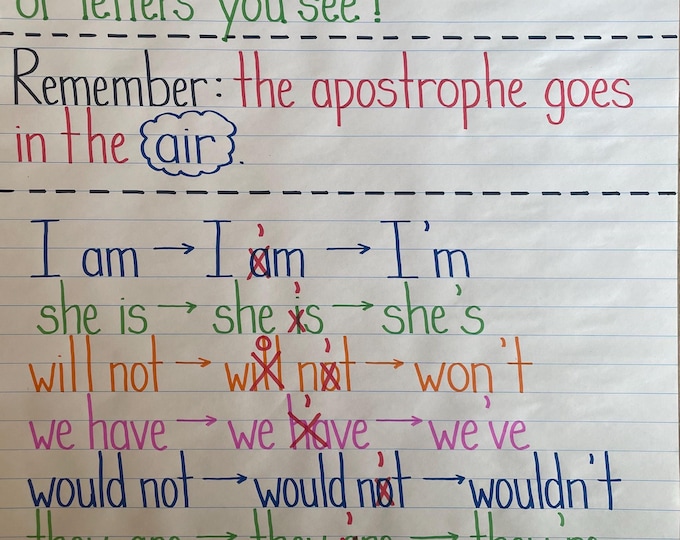 of letters you see!
Remember: the apostrophe goes
in the air.
I am → I am → I'm
she is → she is → she's
will not → will not → won't
we have → we have → we've
would not → would not → wouldn't
they are → they are → they're